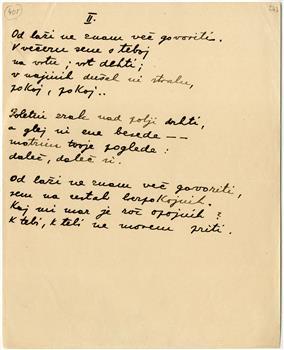 401
II.
Od laži ne znam več govoriti.
V večeru sem s teboj
na vrtu; vrt dehti;
v najinih dušah ni strahu,
pokoj, pokoj..
Poletni zrak nad polji drhti,
a glej ni ene besede ——
motrim tvoje poglede:
daleč, daleč si.
Od laži ne znam več govoriti,
sem na cestah brezpokojnih.
Kaj mi mar je rož opojnih?
K tebi, k tebi ne morem priti.